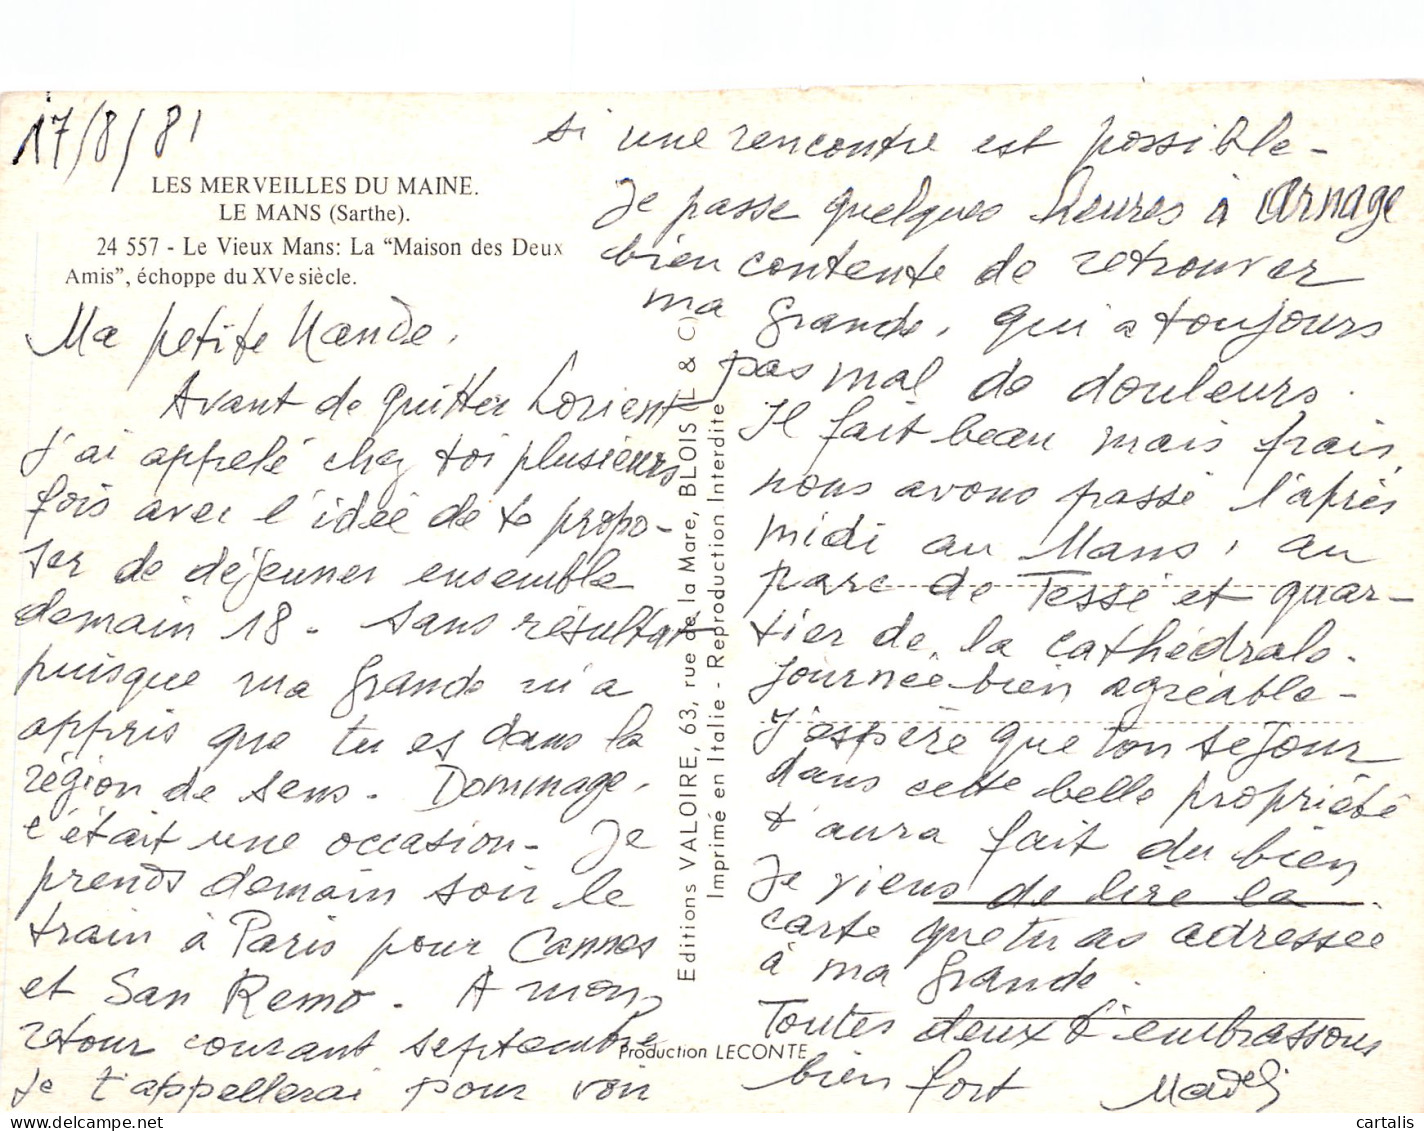 17/8/81
LES MERVEILLES DU MAINE.
LE MANS (Sarthe).
24 557 - Le Vieux Mans: La “Maison des Deux
Amis”, échoppe du XVe siècle.
Ma petite Nande,
Avant de quitter Lorient
j'ai appelé chez toi plusieurs
fois avec l'idée de te propo-
ser de déjeuner ensemble
demain 18 - sans résultat
puisque ma grande m'a
appris que tu es dans la
région de Sens. Dommage,
c'était une occasion - Je
prends demain soir le
train à Paris pour Cannes
et San Remo. A mon
retour courant septembre
je t'appellerai pour voir
si une rencontre est possible -
Je passe quelques heures à Arnage
bien contente de retrouver
ma grande, qui a toujours
pas mal de douleurs.
Il fait beau mais frais,
nous avons passé l'après
midi au Mans, au
parc de Tessé et quar-
tier de la cathédrale.
journée bien agréable -
J'espère que ton séjour
dans cette belle propriété
t'aura fait du bien
Je viens de lire la
carte que tu as adressée
à ma grande.
Toutes deux t'embrassons
bien fort Madeli
Editions VALOIRE, 63, rue de la Mare, BLOIS (L & C)
Imprimé en Italie - Reproduction Interdite
Production LECONTE
cartalis